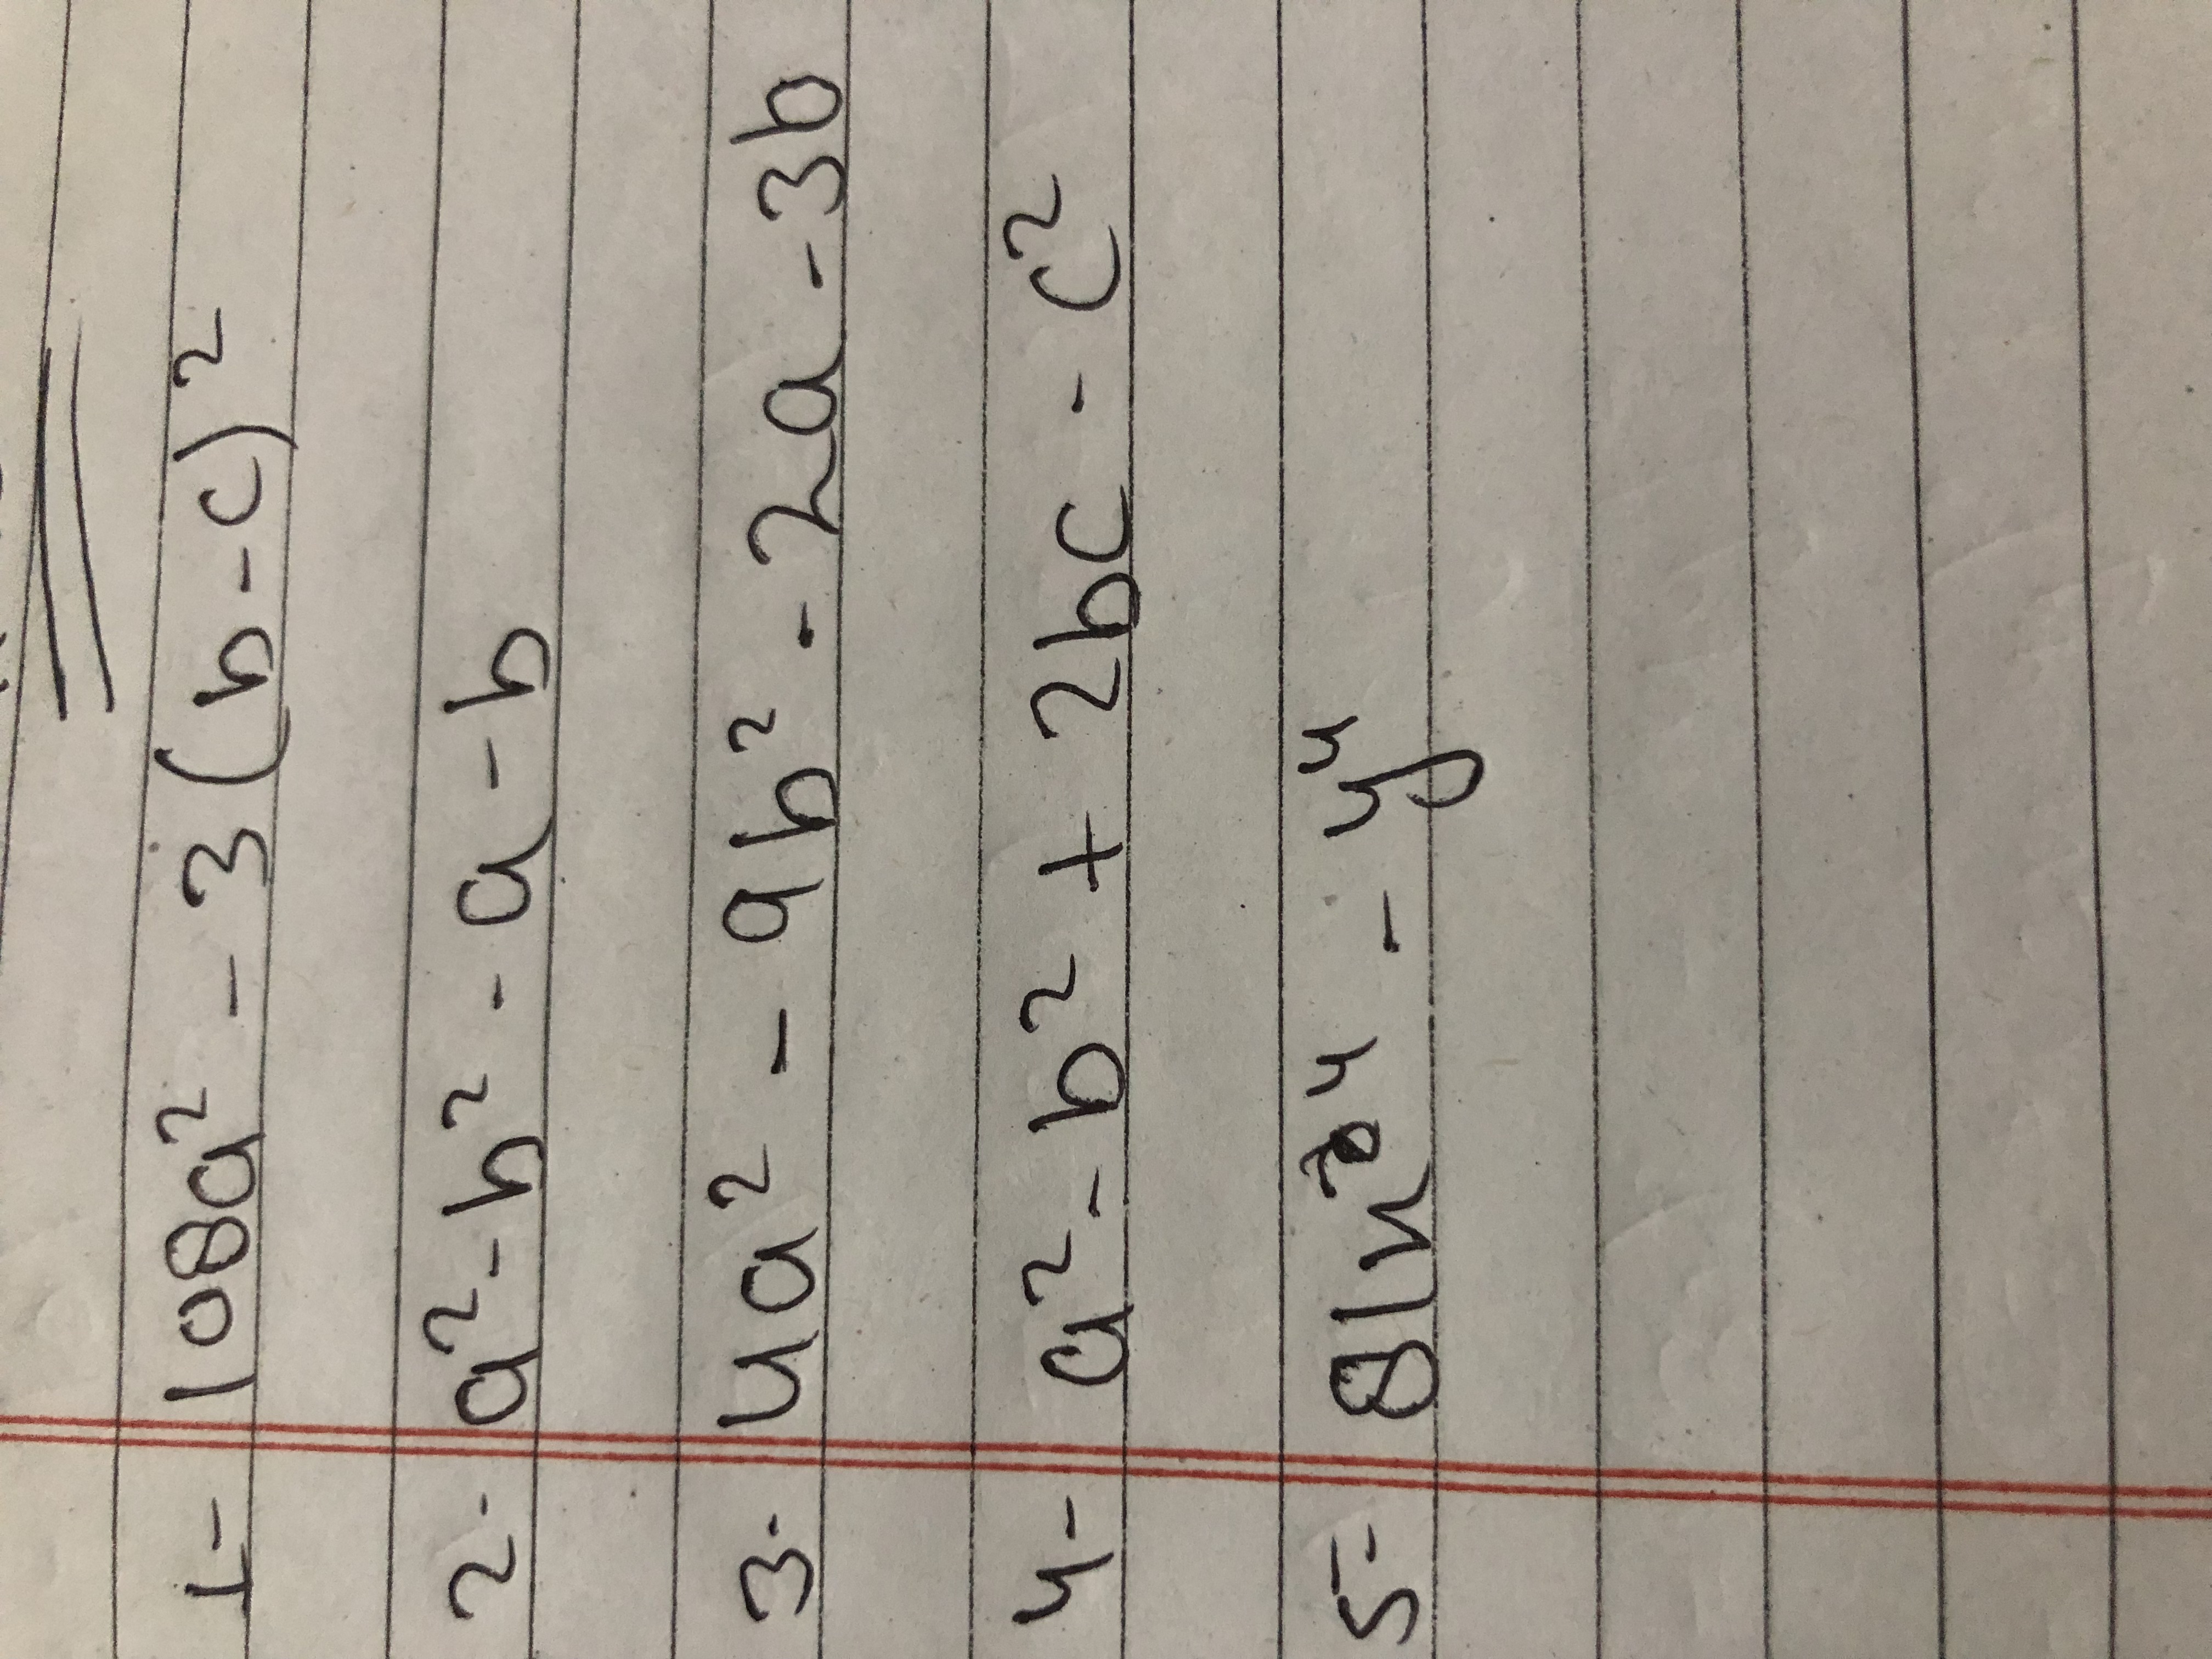 1- 108a² - 3(b-c)²
2. a²-b² - a - b
3. 4a² - 9b² - 2a - 3b
4- a² - b² + 2bc - c²
5- 81x⁴ - y⁴